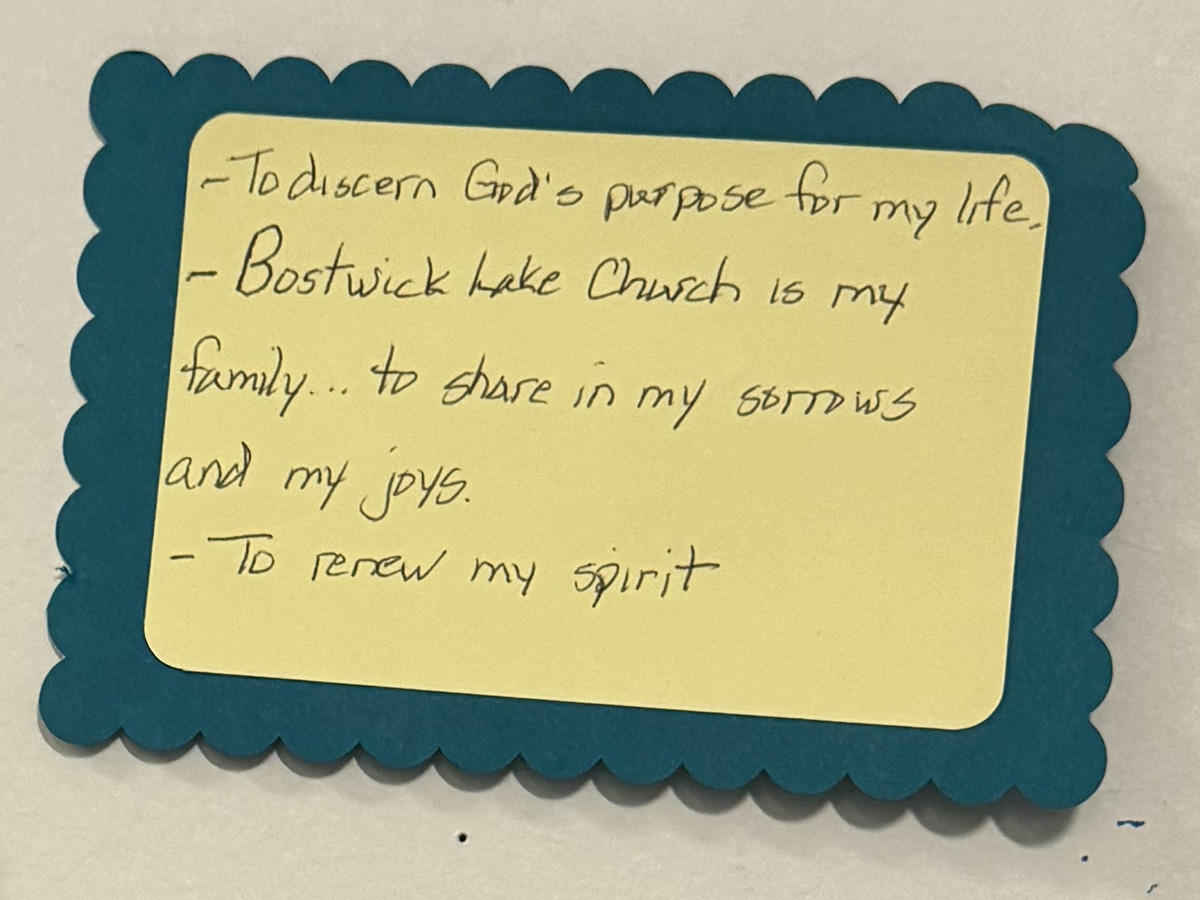 - To discern God's purpose for my life.
- Bostwick Lake Church is my
family... to share in my sorrows
and my joys.
- To renew my spirit